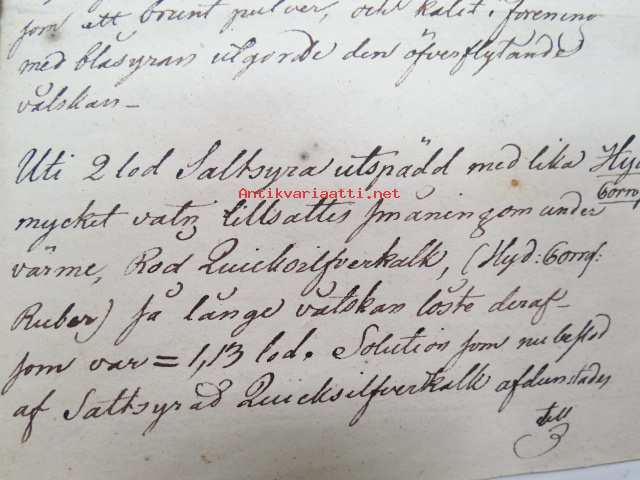 som ett brunt pulver, och kalit i förening
med blåsyran utgorde den öfverflytande
vätskan—
Uti 2 lod Saltsyra utspädd med lika
mycket vatn, tillsattes småningom under
värme, Röd Quicksilfverkalk, (Hyd: Comf:
Ruber) så länge vätskan löste deraf—
som var = 1,13 lod. Solution som nu bestod
af Saltsyrad Quicksilfverkalk afdunstades
till
Hyd
Corro
Antikvariaatti.net